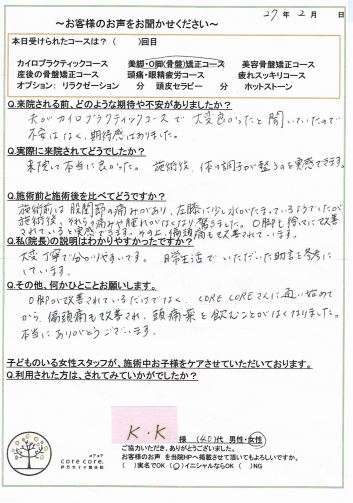 27年 2月 日
～お客様のお声をお聞かせください～
本日受けられたコースは？( )回目
カイロプラクティックコース 美脚・O脚(骨盤)矯正コース 美容骨盤矯正コース
産後の骨盤矯正コース 頭痛・眼精疲労コース 疲れスッキリコース
オプション: リラクゼーション 分 頭皮セラピー 分 ホットストーン
Q.来院される前、どのような期待や不安がありましたか?
夫がカイロプラクティックコースで大変良かったと聞いていたので
不安はなく、期待感はありました。
Q.実際に来院されてどうでしたか?
来院して本当に良かった。施術後、体の調子が整うのを実感できます。
Q.施術前と施術後を比べてどうですか?
施術前は股関節の痛みがあり、左膝に少し水がたまっているようでしたが
施術後、それらの痛みや腫れがなくなり驚きました。O脚も徐々に改善
されていると実感できます。その上、偏頭痛も改善されています。
Q.私(院長)の説明はわかりやすかったですか?
大変丁寧で分かりやすいです。日常生活でいただいた助言を参考に
しています。
Q.その他、何かひとことお願いします。
O脚が改善されているだけではなく、CORE COREさんに通い始めて
から、偏頭痛も改善され、頭痛薬を飲むことがなくなりました。
本当にありがとうございます。
子どものいる女性スタッフが、施術中お子様をケアさせていただいております。
Q.利用された方は、されてみていかがでしたか?
K.K 様 (40)代 男性・女性
ご協力いただき、ありがとうございました。
お客様のお声を当院HPへ掲載させて頂いてもよろしいですか。
( )実名でOK (○)イニシャルならOK ( )NG
core core.